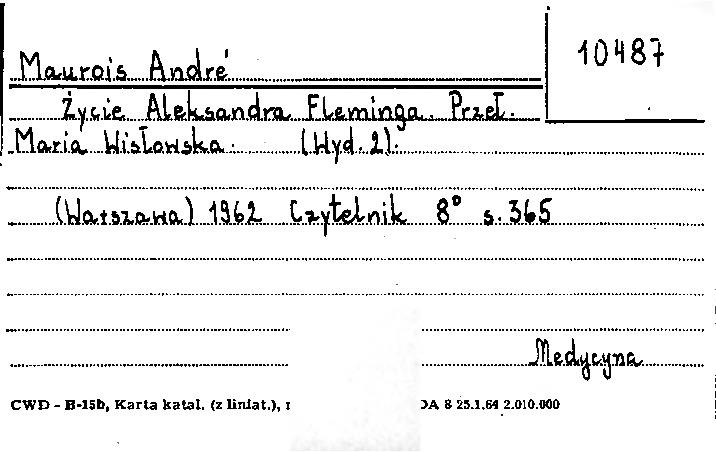 10487
Maurois André
Życie Aleksandra Fleminga. Przeł.
Maria Wisłowska. (Wyd. 2).
(Warszawa) 1962 Czytelnik 8° s. 365
Medycyna
CWD - B-15b, Karta katal. (z liniat.), DA 8 25.1.64 2.010.000